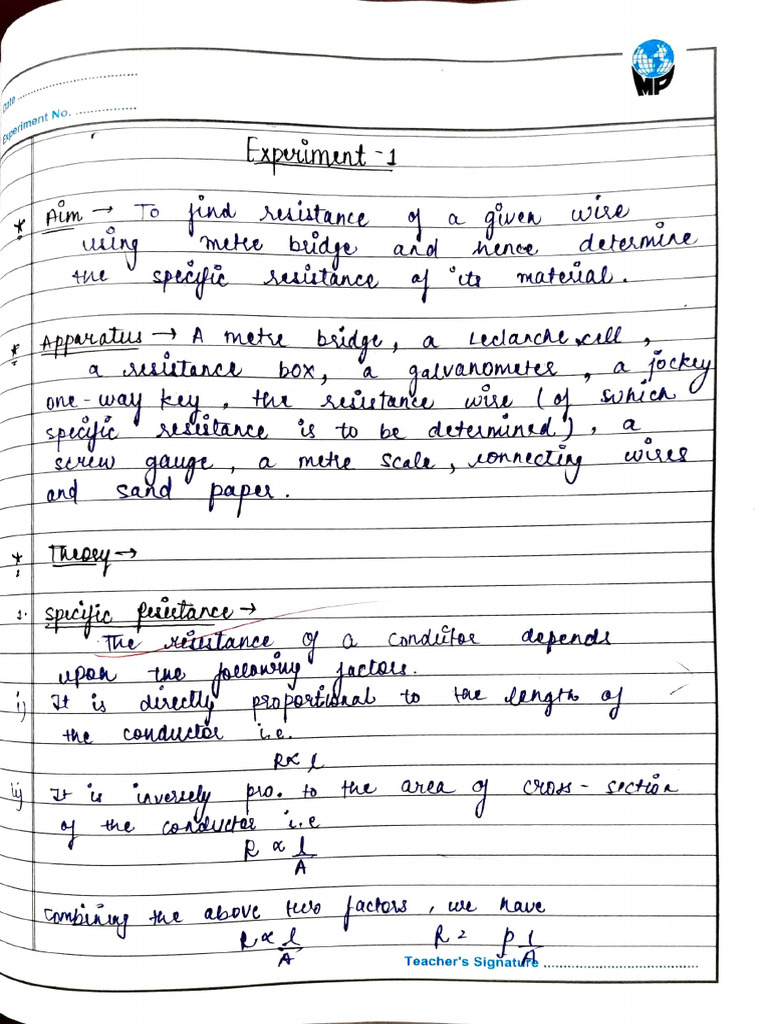 MP
Date
Experiment No.
Experiment - 1
* Aim → To find resistance of a given wire
using metre bridge and hence determine
the specific resistance of its material.
* Apparatus → A metre bridge, a Leclanche cell,
a resistance box, a galvanometer, a jockey
one-way key, the resistance wire (of which
specific resistance is to be determined), a
screw gauge, a metre scale, connecting wires
and sand paper.
* Theory →
1. Specific Resistance →
The resistance of a conductor depends
upon the following factors.
i) It is directly proportional to the length of
the conductor i.e.
R ∝ l
ii) It is inversely pro. to the area of cross-section
of the conductor i.e
R ∝ l/A
Combining the above two factors, we have
R ∝ l/A R = ρ l/A
Teacher's Signature